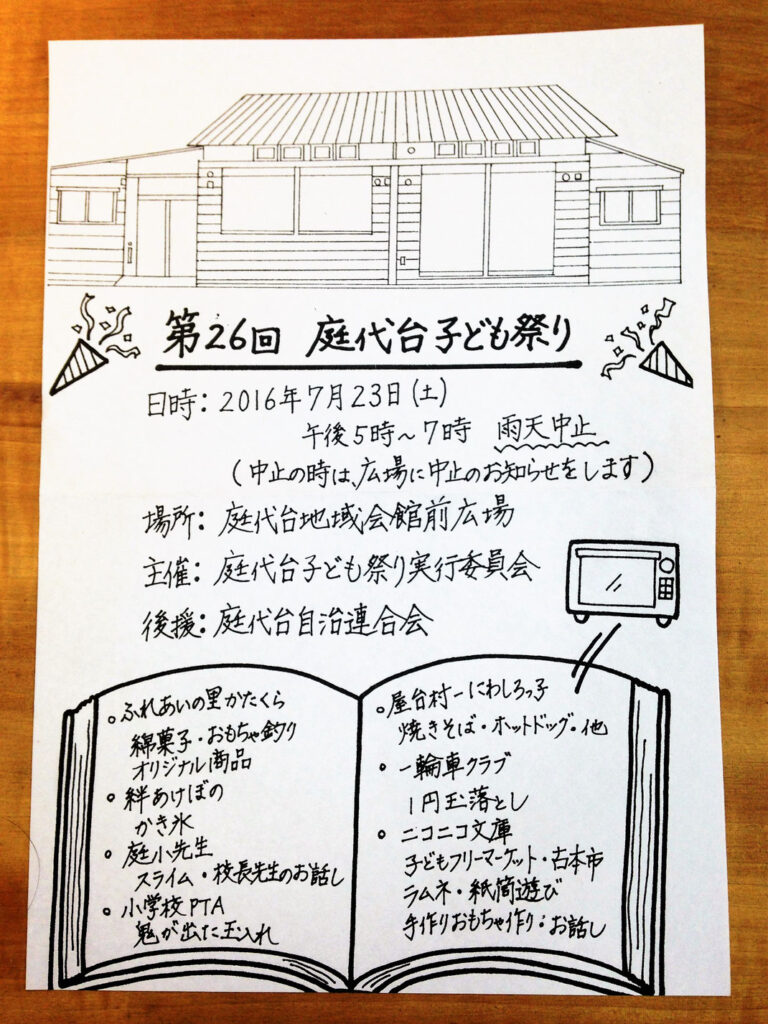 第26回 庭代台子ども祭り
日時: 2016年7月23日(土)
午後5時~7時 雨天中止
(中止の時は、広場に中止のお知らせをします)
場所: 庭代台地域会館前広場
主催: 庭代台子ども祭り実行委員会
後援: 庭代台自治連合会
○ふれあいの里かたくら
綿菓子・おもちゃ釣り
オリジナル商品
○絆あけぼの
かき氷
○庭小先生
スライム・校長先生のお話し
○小学校PTA
鬼が出た玉入れ
○屋台村ーにわしろっ子
焼きそば・ホットドッグ・他
○一輪車クラブ
1円玉落とし
○ニコニコ文庫
子どもフリーマーケット・古本市
ラムネ・紙筒遊び
手作りおもちゃ作り:お話し